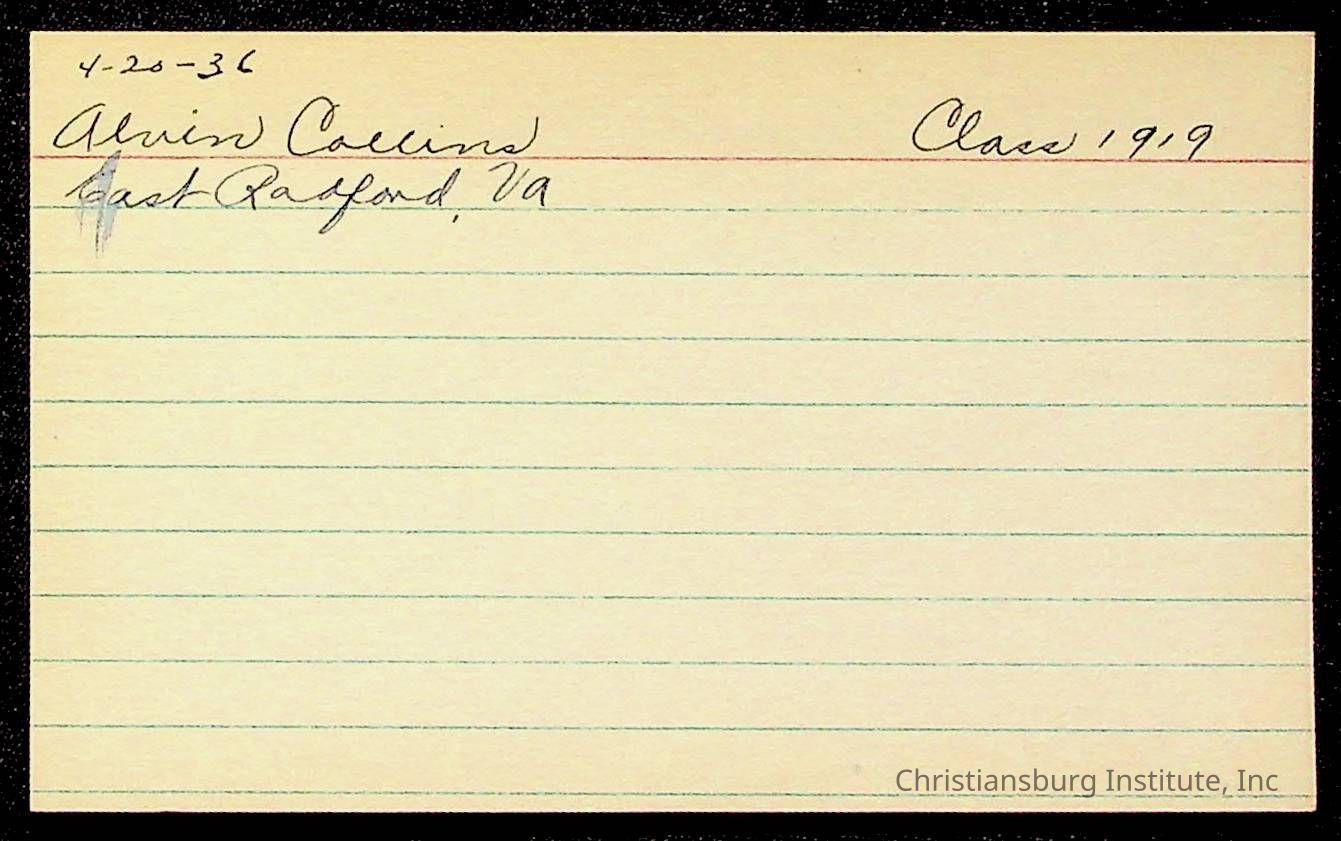 4-20-36
Alvin Collins Class 1919
East Radford, Va
Christiansburg Institute, Inc